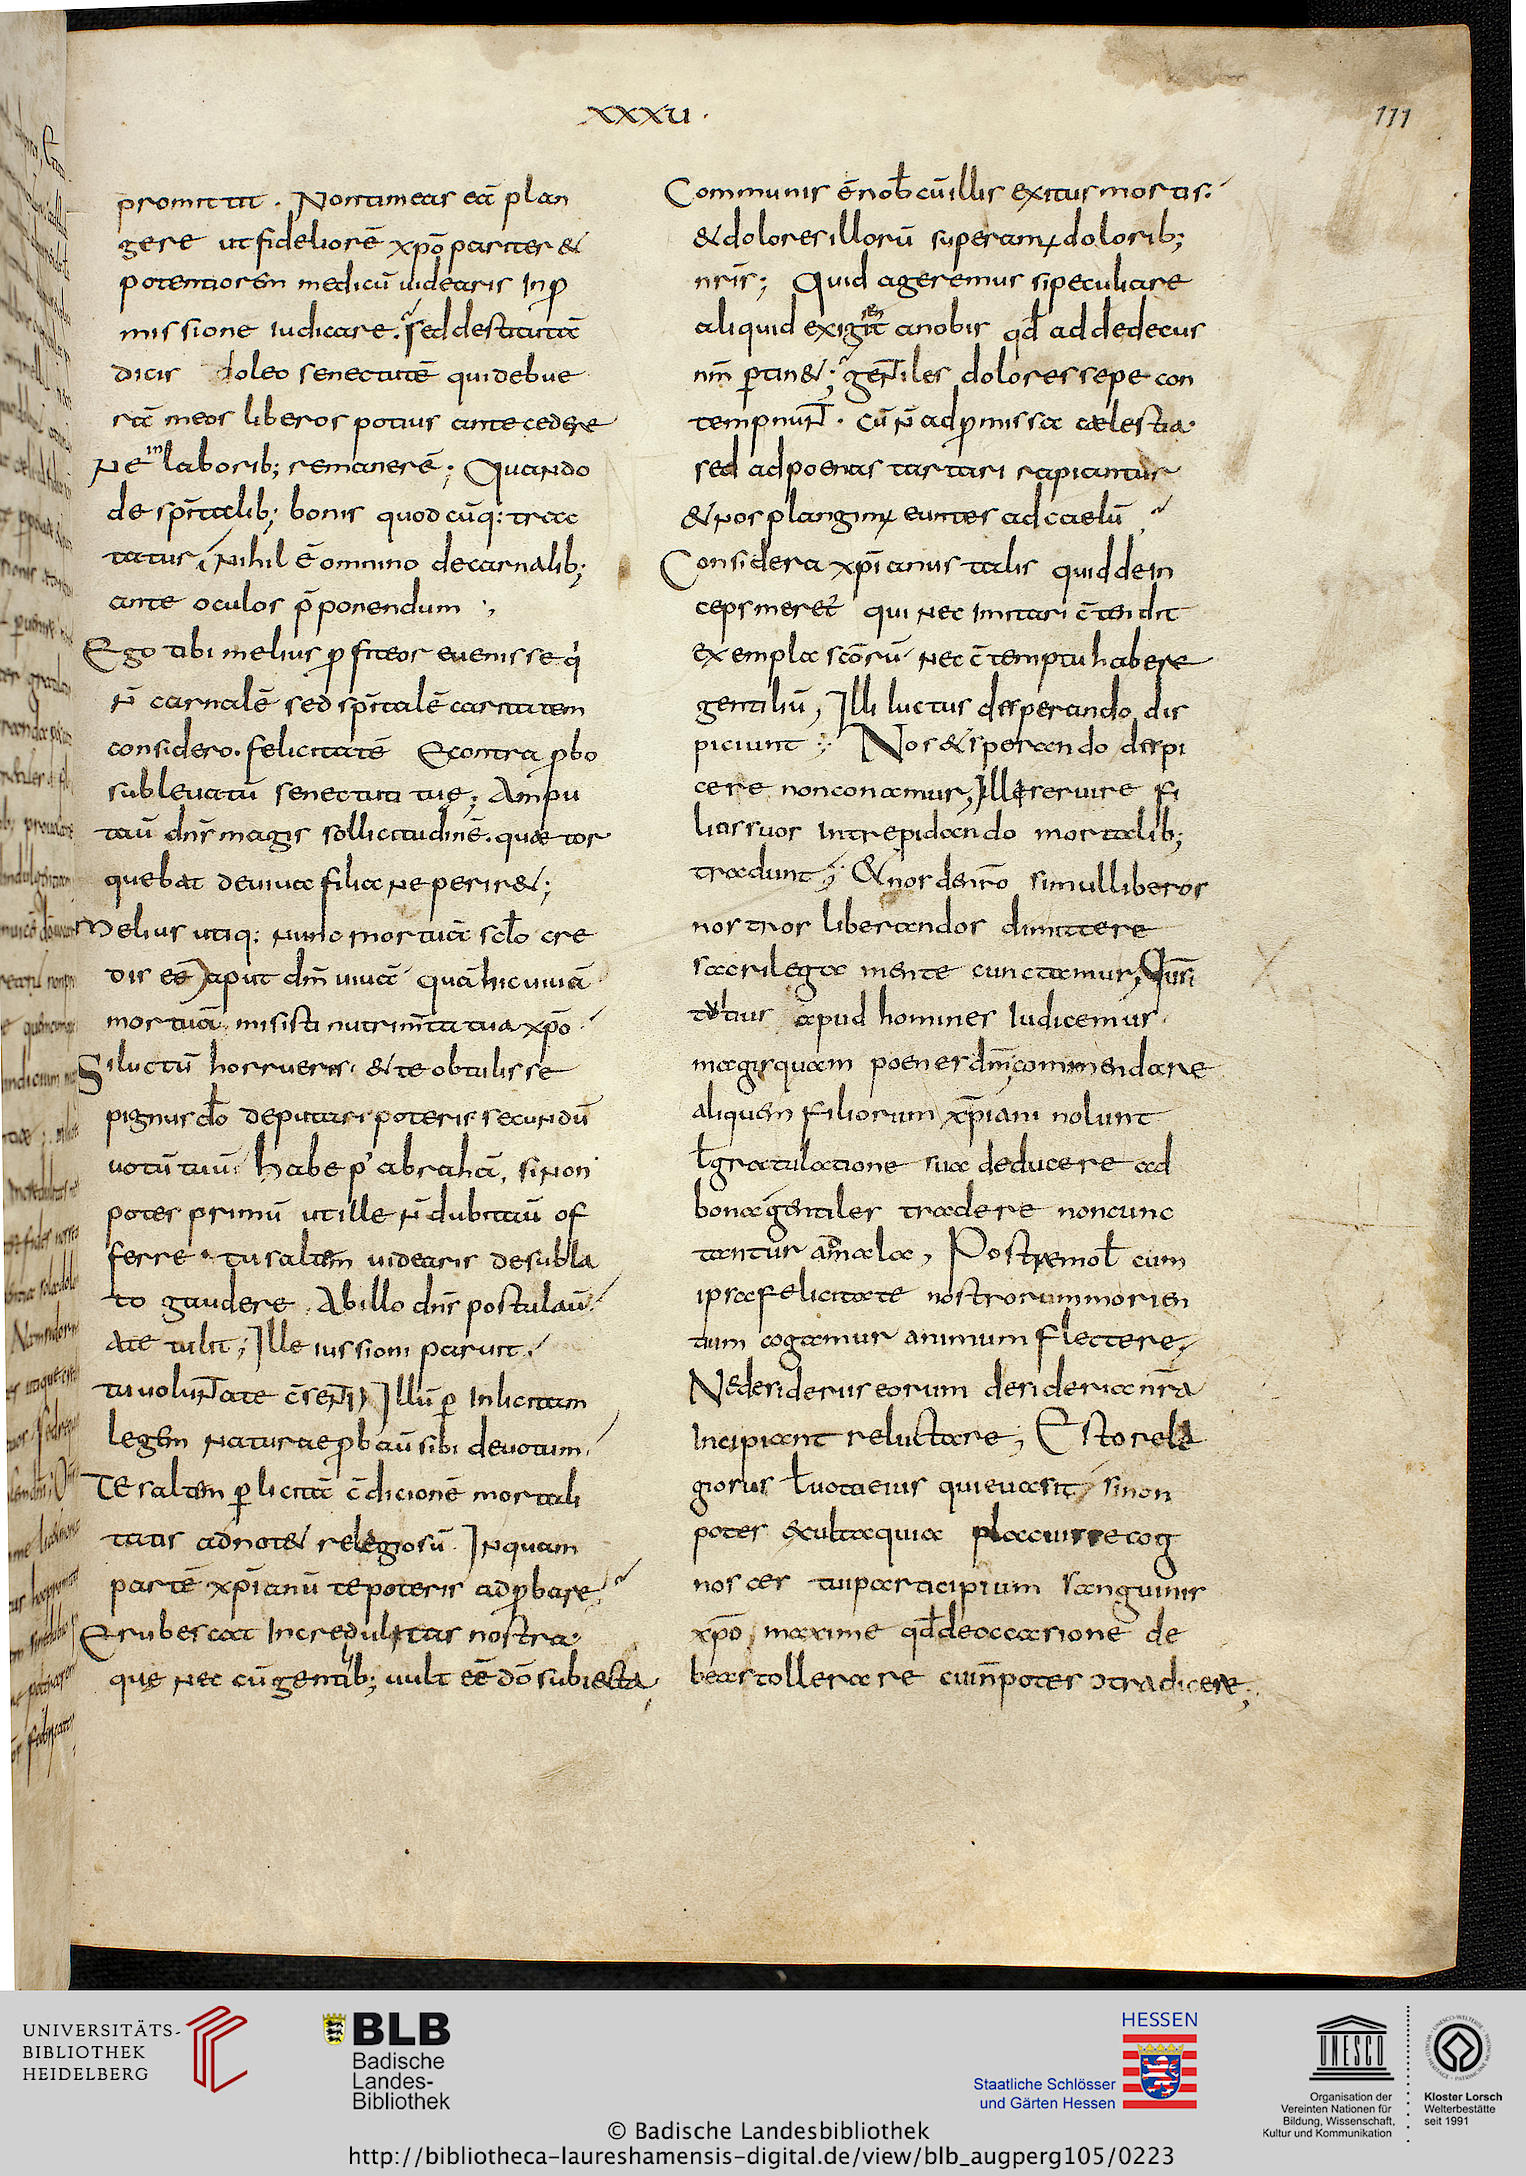 xxxu.
111
promittit . Non timeas eā plan
gere ut fideliorē xpō pariter &
potentiorem medicū uidearis In ꝓ
missione iudicare. sed destitutā
dicis doleo senectutē qui debue
rā meos liberos potius antecedere
Ne in laborib; remanerē; Quando
de spītalib; bonis quodcūq: trac
tatur, Nihil ē omnino de carnalib;
ante oculos p̄ponendum ;
Ego tibi melius ꝓfiteor euenisse qi
n̄ carnalē sed spītalē caritatem
considero. felicitatē Econtra ꝓbo
subleuatū senectuti tuę; Ampu
tau dn̄s magis sollicitudinē. quae tor
quebat de uiua filia ne perir&;
Melius utiq: nunc mortuā sclo cre
dis eē aput dm̄ uiuā quā hic uiuā
mortuā misisti nutrimta tua xpō
Si luctū horrueris. & te obtulisse
pignus do deputari poteris secundū
uotū tuū. habe p abrahā, si non
potes primū ut ille n̄ dubitau of
ferre. tu saltem uidearis de subla
to gaudere. Ab illo dn̄s postulau
a te tulit; Ille iussioni paruit.
tu voluntate c̄senti Illū p̲ Inlicitam
legem naturae ꝓbau sibi deuotum.
Te saltem p̲ licitā c̄dicionē mortali
tatis adnot& relegiosū. In quam
partē xp̄ianū te poteris adꝓbare,
Erubescat Incredulitas nostra.
que nec cū gentib; uult eē dō subiecta,
Communis ē nob cū illis exitus mortis.
& dolores illorū superamꝰ dolorib;
nr̄is; Quid ageremus si peculiare
aliquid exigit a nobis qd ad dedecus
nm̄ p̲tin&; gentiles dolores sepe con
tempnunt. cū n̄ ad ꝓmissa caelestia.
sed ad poenas tartari rapiantur
& nos plangimꝰ euntes ad caelū
Considera xp̄ianus talis quid dein
ceps meret qui nec imitari c̄tendit
exempla scōrū nec c̄temptu habere
gentiliū, Illi luctus desperando dis
piciunt ; Nos & sperando dispi
cere non conamur, Ille seruire fi
lias suos Intrepidando mortalib;
tradunt; & nos den̄ro simul liberos
nostros liberandos dimittere
sacrilega mente cunctamur,
apud homines Iudicemur
magis quam poenes dm̄, commendare
aliquem filiorum xp̄iani nolunt
ł gratulatione sua deducere ad
bona gentiles tradere non cunc
tantur mala, Postremoł cum
ipsa felicitate nostrorum morien
tum cogamur animum flectere,
Ne desiderus eorum desideria nr̄a
Incipiant reluctare; Esto rele
giosus ł uota eius qui euasit, si non
potes exulta quia placuisse cog
noscas tui participium sanguinis
xpō maxime qd de occasione de
beas tollerare cui n̄ potes ɔtradicere;
UNIVERSITÄTS-
BIBLIOTHEK
HEIDELBERG
BLB
Badische
Landes-
Bibliothek
HESSEN
Staatliche Schlösser
und Gärten Hessen
UNESCO
Organisation der
Vereinten Nationen für
Bildung, Wissenschaft,
Kultur und Kommunikation
Kloster Lorsch
Welterbestätte
seit 1991
© Badische Landesbibliothek
http://bibliotheca-laureshamensis-digital.de/view/blb_augperg105/0223